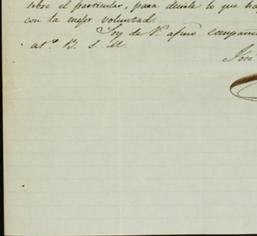 sobre el particular, para decirle lo que ha
con la mejor voluntad.
Soy de V. afmo. compañe
at.º B. S. M.
Jose